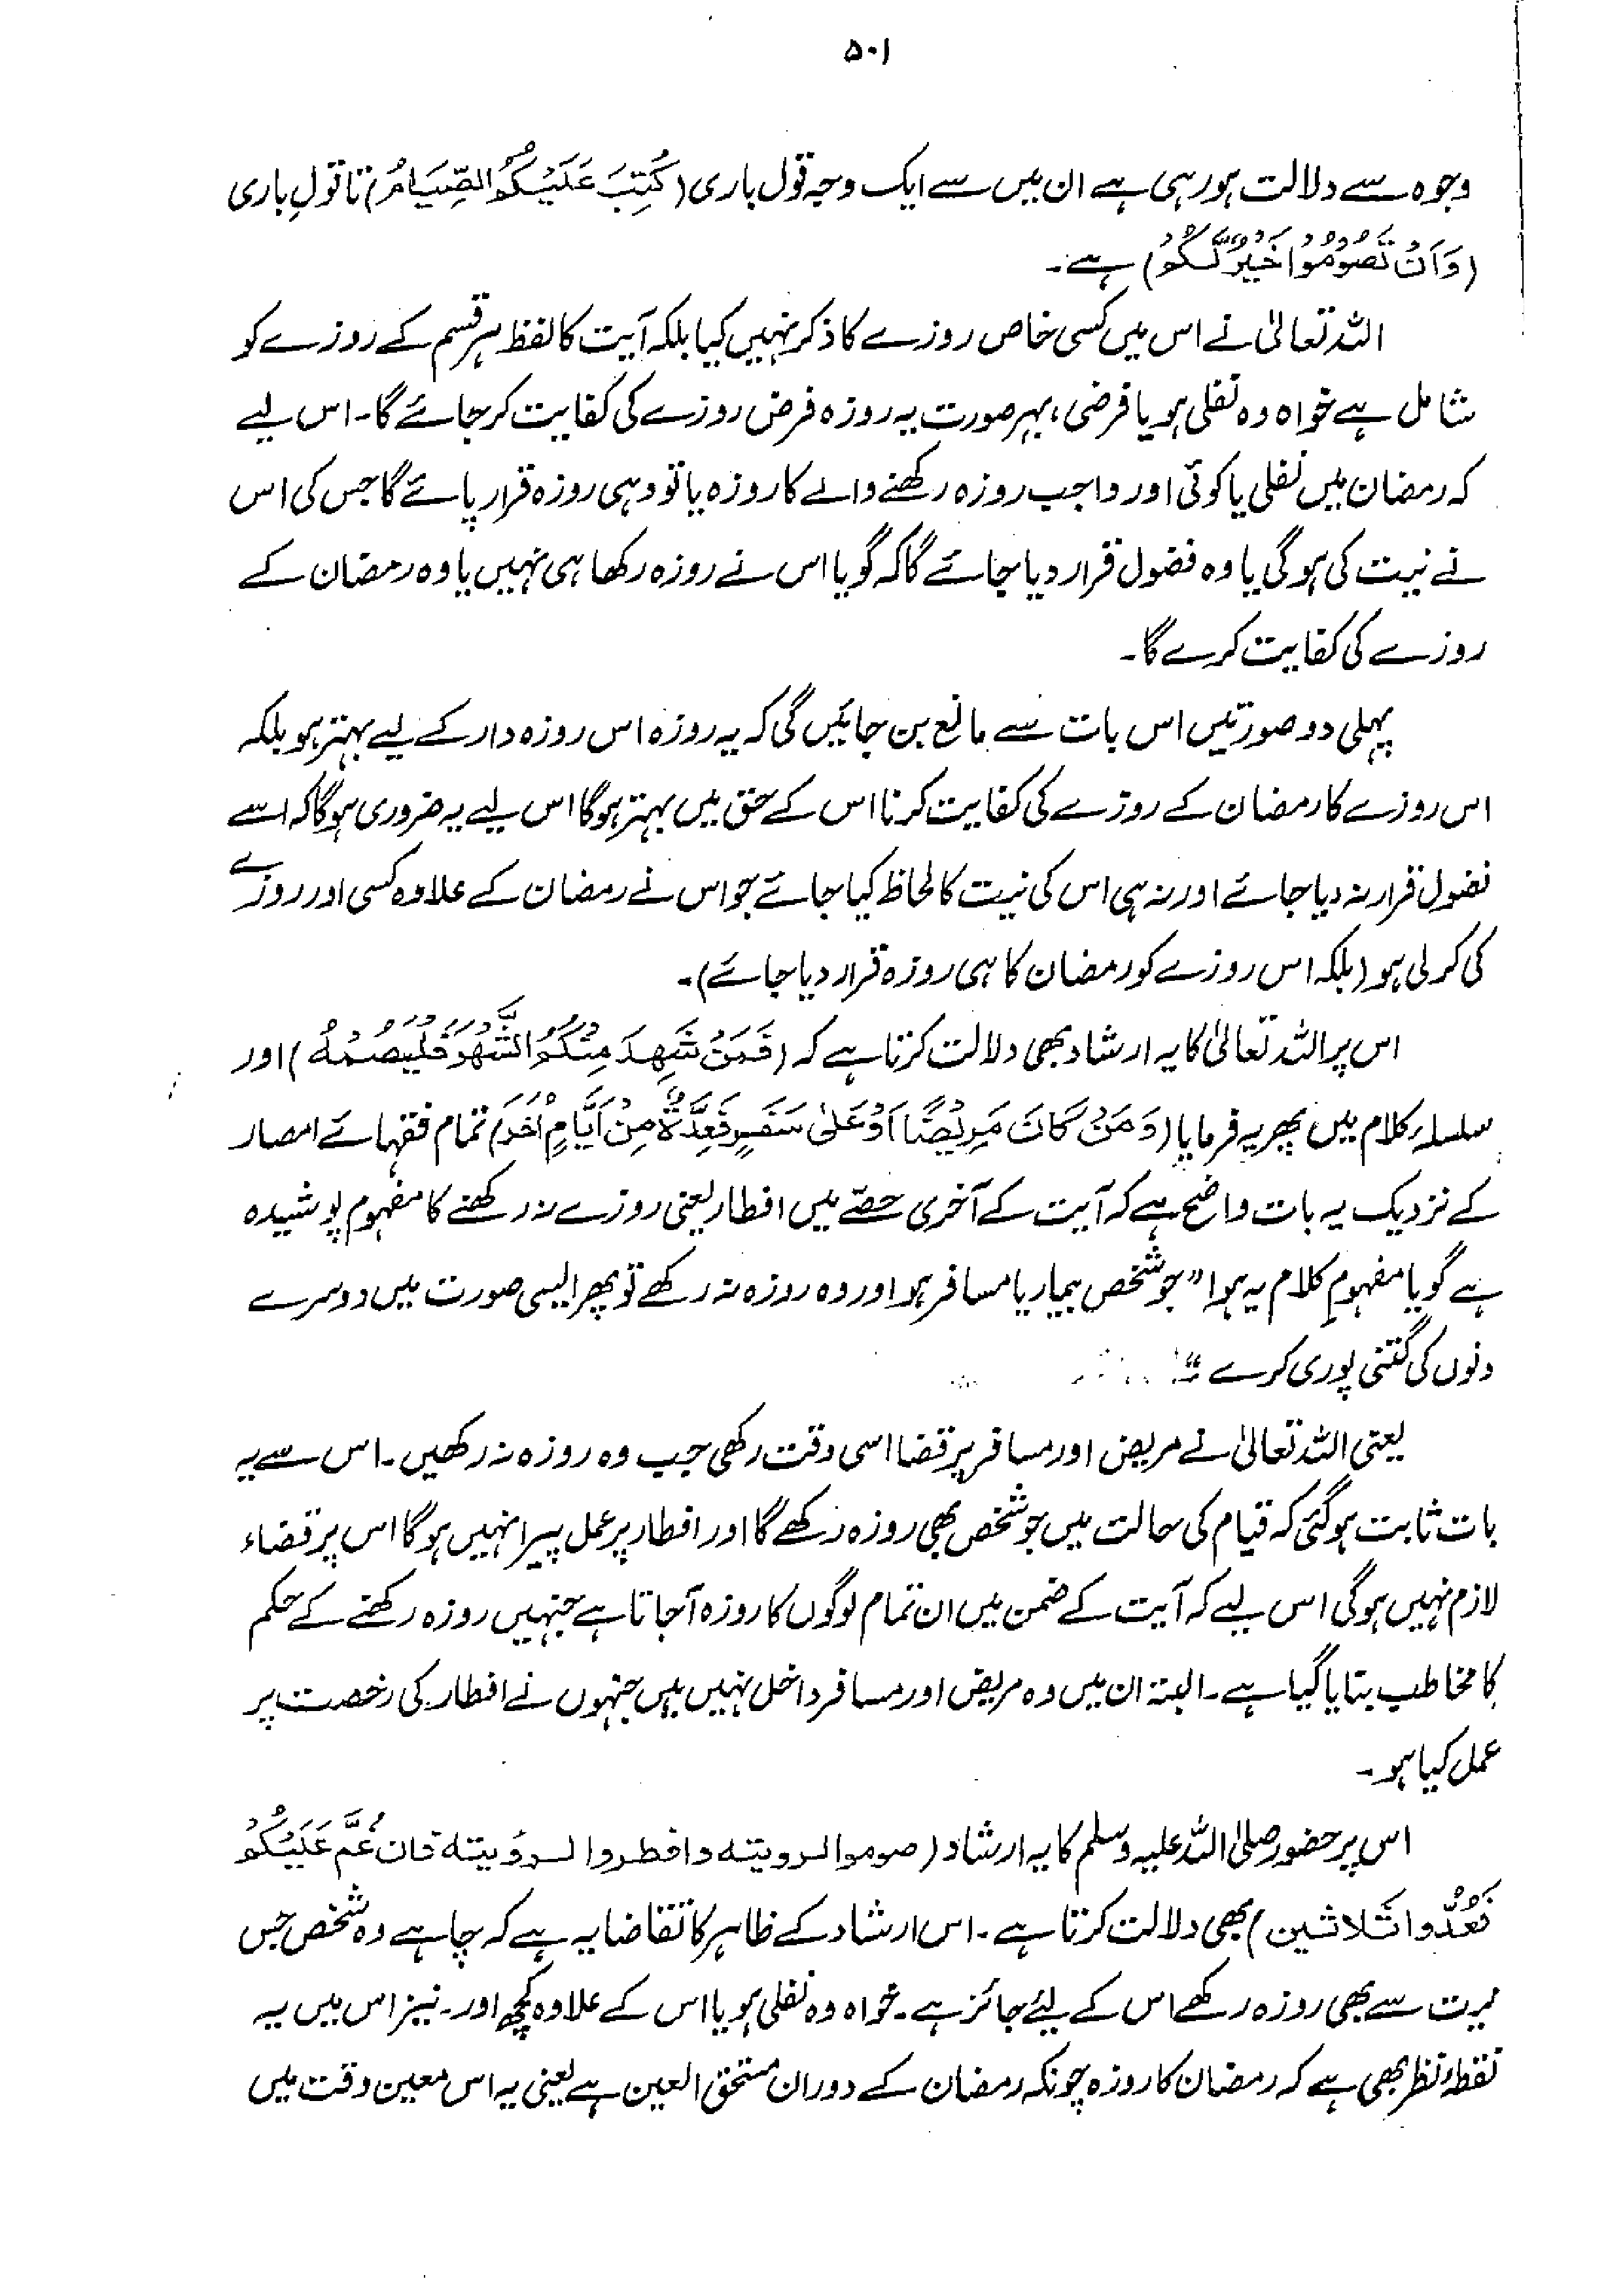 ۵۰۱
وجوہ سے دلالت ہو رہی ہے ان میں سے ایک وجہ قول باری (كُتِبَ عَلَيْكُمُ الصِّيَامُ) تا قولِ باری
(وَاَنْ تَصُوْمُوْا خَيْرٌ لَّكُمْ) ہے۔
اللہ تعالیٰ نے اس میں کسی خاص روزے کا ذکر نہیں کیا بلکہ آیت کا لفظ ہر قسم کے روزے کو
شامل ہے خواہ وہ نفلی ہو یا فرضی، بہر صورت یہ روزہ فرض روزے کی کفایت کر جائے گا۔ اس لیے
کہ رمضان میں نفلی یا کوئی اور واجب روزہ رکھنے والے کا روزہ یا تو وہی روزہ قرار پائے گا جس کی اس
نے نیت کی ہوگی یا وہ فضول قرار دیا جائے گا کہ گویا اس نے روزہ رکھا ہی نہیں یا وہ رمضان کے
روزے کی کفایت کرے گا۔
پہلی دو صورتیں اس بات سے مانع بن جائیں گی کہ یہ روزہ اس روزہ دار کے لیے بہتر ہو بلکہ
اس روزے کا رمضان کے روزے کی کفایت کرنا اس کے حق میں بہتر ہوگا اس لیے یہ ضروری ہوگا کہ اسے
فضول قرار نہ دیا جائے اور نہ ہی اس کی نیت کا لحاظ کیا جائے جو اس نے رمضان کے علاوہ کسی اور روزے
کی کر لی ہو (بلکہ اس روزے کو رمضان کا ہی روزہ قرار دیا جائے)۔
اس پر اللہ تعالیٰ کا یہ ارشاد بھی دلالت کرتا ہے کہ (فَمَنْ شَهِدَ مِنْكُمُ الشَّهْرَ فَلْيَصُمْهُ) اور
سلسلۂ کلام میں پھر یہ فرمایا (وَمَنْ كَانَ مَرِيْضًا اَوْ عَلٰى سَفَرٍ فَعِدَّةٌ مِنْ اَيَّامٍ اُخَرَ) تمام فقہائے امصار
کے نزدیک یہ بات واضح ہے کہ آیت کے آخری حصّے میں افطار یعنی روزے نہ رکھنے کا مفہوم پوشیدہ
ہے گویا مفہومِ کلام یہ ہوا ”جو شخص بیمار یا مسافر ہو اور وہ روزہ نہ رکھے تو پھر ایسی صورت میں دوسرے
دنوں کی گنتی پوری کرے“
یعنی اللہ تعالیٰ نے مریض اور مسافر پر قضا اسی وقت رکھی جب وہ روزہ نہ رکھیں۔ اس سے یہ
بات ثابت ہوگئی کہ قیام کی حالت میں جو شخص بھی روزہ رکھے گا اور افطار پر عمل پیرا نہیں ہوگا اس پر قضاء
لازم نہیں ہوگی اس لیے کہ آیت کے ضمن میں ان تمام لوگوں کا روزہ آجاتا ہے جنہیں روزہ رکھنے کے حکم
کا مخاطب بتایا گیا ہے۔ البتہ ان میں وہ مریض اور مسافر داخل نہیں ہیں جنہوں نے افطار کی رخصت پر
عمل کیا ہو۔
اس پر حضور صلی اللہ علیہ وسلم کا یہ ارشاد (صوموا لرويته وافطروا لرؤيته فان غُمَّ عَلَيْكُمْ
فَعُدُّوا ثَلاثين) بھی دلالت کرتا ہے۔ اس ارشاد کے ظاہر کا تقاضا یہ ہے کہ چاہے وہ شخص جس
نیت سے بھی روزہ رکھے اس کے لیئے جائز ہے۔ خواہ وہ نفلی ہو یا اس کے علاوہ کچھ اور۔ نیز اس میں یہ
نقطۂ نظر بھی ہے کہ رمضان کا روزہ چونکہ رمضان کے دوران مستحق العین ہے یعنی یہ اس معین وقت میں